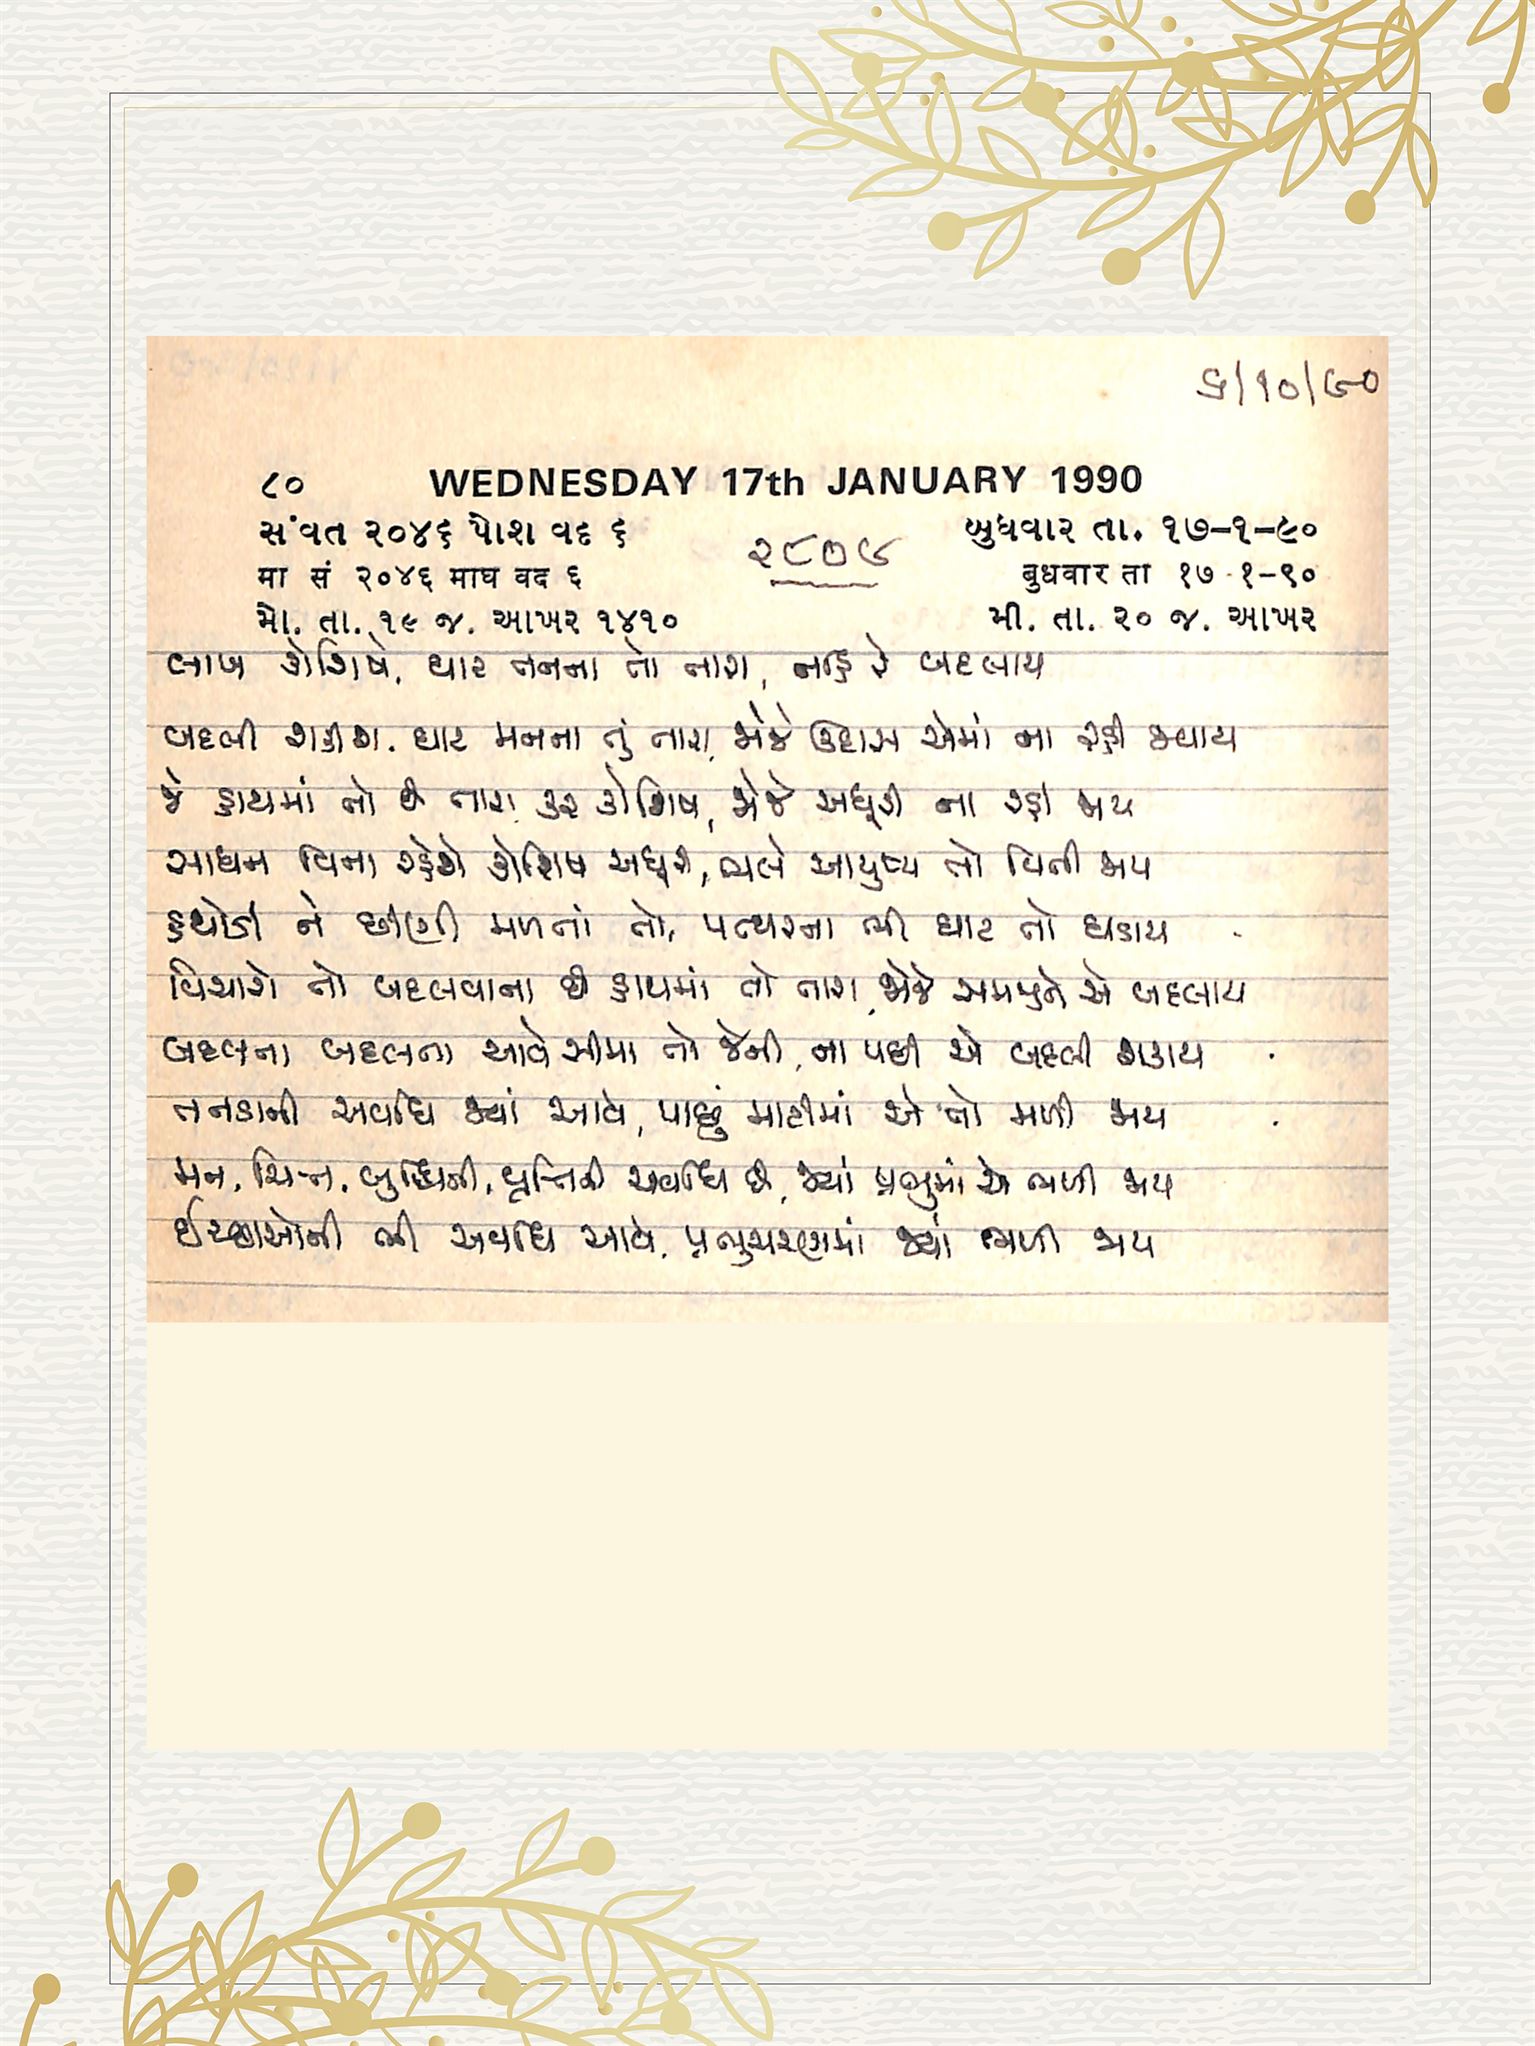 ૬/૧૦/૯૦
૮૦ WEDNESDAY 17th JANUARY 1990
સંવત ૨૦૪૬ પોશ વદ ૬ બુધવાર તા. ૧૭-૧-૯૦
૨૮૦૯
मा सं २०४६ माघ वद ६ बुधवार ता १७-१-९०
મો. તા. ૧૯ જ. આખર ૧૪૧૦ મી. તા. ૨૦ જ. આખર
લાખ કોશિષે, ઘાટ તનના તો તારા, નહિ રે બદલાય
બદલી શકીશ. ઘાટ મનના તું તારા, જોજે ઉદાસ એમાં ના રહી જવાય
જે હાથમાં તો છે તારા કર કોશિષ, જોજે અધૂરી ના રહી જાય
સાધન વિના રહેશે કોશિષ અધૂરી, ભલે આયુષ્ય તો વિતી જાય
હથોડી ને છીણી મળતાં તો, પત્થરના ભી ઘાટ તો ઘડાય
વિચારો તો બદલવાના છે હાથમાં તો તારા, જોજે સમજીને એ બદલાય
બદલતા બદલતા આવે સીમા તો જેની, ના પછી એ બદલી શકાય
તનડાની અવધિ જ્યાં આવે, પાછું માટીમાં એ તો મળી જાય
મન, ચિત્ત, બુદ્ધિની, વૃત્તિની અવધિ છે, જ્યાં પ્રભુમાં એ ભળી જાય
ઈચ્છાઓની ભી અવધિ આવે, પ્રભુચરણમાં જ્યાં ભળી જાય